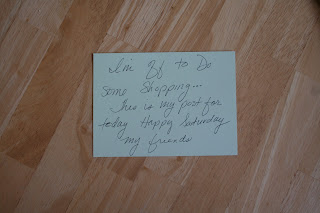 I'm Off to Do
Some Shopping...
This is my post for
today Happy Saturday
my friends